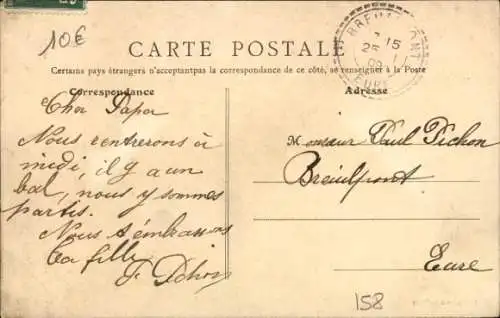 10€
BREUILPONT
15
25
09
EURE
CARTE POSTALE
Certains pays étrangers n'acceptant pas la correspondance de ce côté, se renseigner à la Poste
Correspondance
Adresse
Cher Papa
Nous rentrerons à
midi, il y a un
bal, nous y sommes
partis.
Nous t'embrassons
Ta fille
Pichon
Monsieur Paul Pichon
Breuilpont
Eure
158